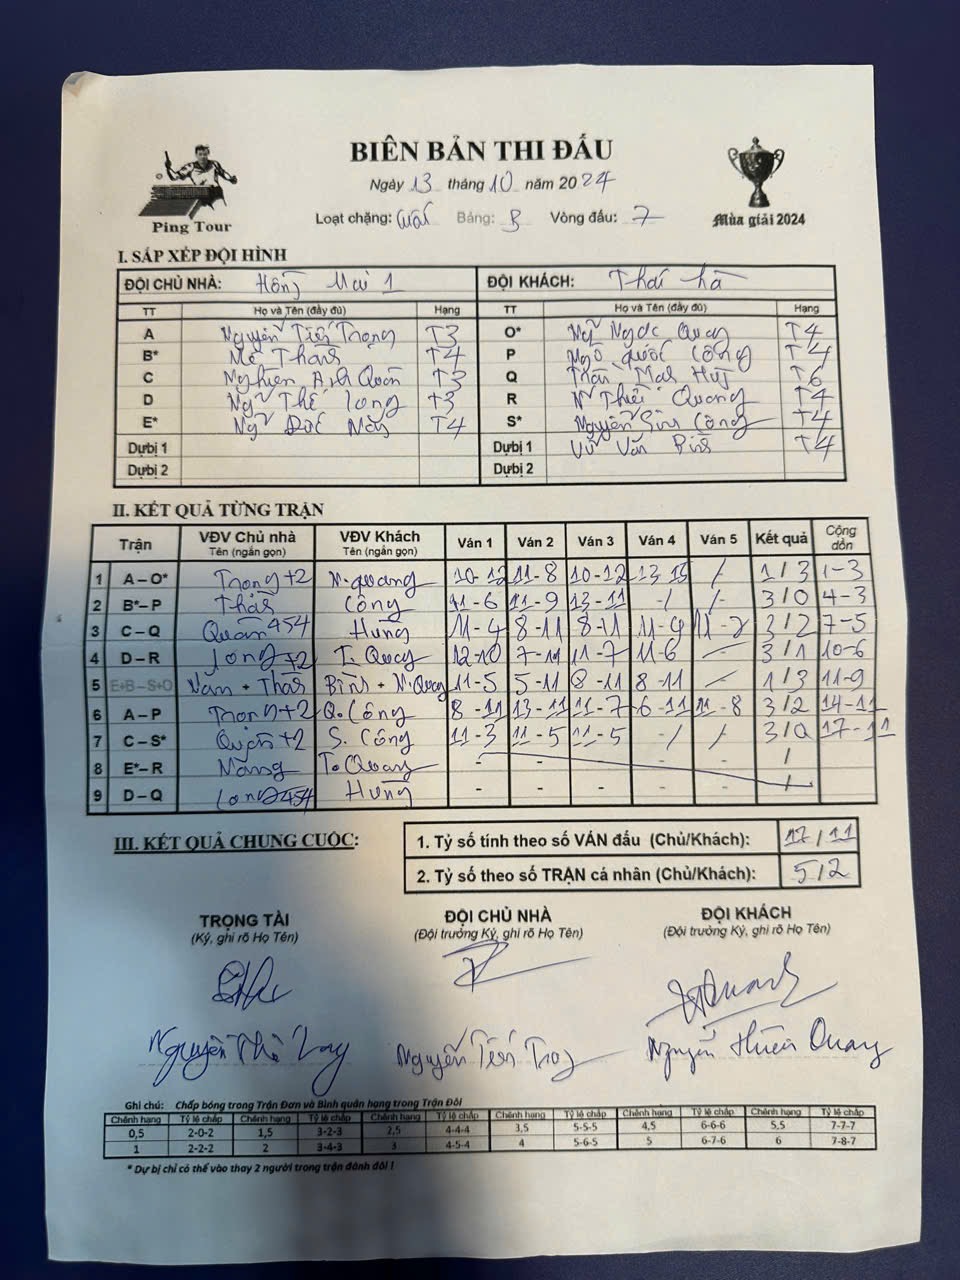 BIÊN BẢN THI ĐẤU
Ngày 13 tháng 10 năm 2024
Ping Tour
Loạt chặng: Bảng: B Vòng đấu: 7
Mùa giải 2024
I. SẮP XẾP ĐỘI HÌNH
ĐỘI CHỦ NHÀ: Hồng Mai 1 ĐỘI KHÁCH: Thái Hà
TT Họ và Tên (đầy đủ) Hạng TT Họ và Tên (đầy đủ) Hạng
A Nguyễn Tiến Trọng T3 O* Ngọc Quang T4
B* Thái T4 P Ngô Quốc Công T4
C Nghiêm Anh Quân T3 Q T6
D Thế Long T3 R Quang T4
E* T4 S* Nguyễn Công T4
Dự bị 1 Dự bị 1 Vũ Văn T4
Dự bị 2 Dự bị 2
II. KẾT QUẢ TỪNG TRẬN
Trận VĐV Chủ nhà Tên (ngắn gọn) VĐV Khách Tên (ngắn gọn) Ván 1 Ván 2 Ván 3 Ván 4 Ván 5 Kết quả Cộng dồn
1 A – O* Trọng+2 N.quang 10-12 11-8 10-12 13-15 / 1/3 1-3
2 B*– P Công 11-6 11-9 13-11 -/ /- 3/0 4-3
3 C – Q Quân 454 Hùng 11-4 8-11 8-11 11-9 11-2 3/2 7-5
4 D – R Long+2 T. Quang 12-10 7-11 11-7 11-6 - 3/1 10-6
5 E+B – S+O + N.Quang 11-5 5-11 8-11 8-11 - 1/3 11-9
6 A – P Trọng+2 Q.Công 8-11 13-11 11-7 6-11 11-8 3/2 14-11
7 C – S* Quân+2 S. Công 11-3 11-5 11-5 -/ / 3/0 17-11
8 E*– R T.Quang - - - - - /
9 D – Q Long454 Hùng - - - - - /
III. KẾT QUẢ CHUNG CUỘC:
1. Tỷ số tính theo số VÁN đấu (Chủ/Khách): 17/11
2. Tỷ số theo số TRẬN cá nhân (Chủ/Khách): 5/2
TRỌNG TÀI ĐỘI CHỦ NHÀ ĐỘI KHÁCH
(Ký, ghi rõ Họ Tên) (Đội trưởng Ký, ghi rõ Họ Tên) (Đội trưởng Ký, ghi rõ Họ Tên)
Nguyễn Thế Long Nguyễn Tiến Trọng Nguyễn Quang
Ghi chú: Chấp bóng trong Trận Đơn và Bình quân hạng trong Trận Đôi
Chênh hạng Tỷ lệ chấp Chênh hạng Tỷ lệ chấp Chênh hạng Tỷ lệ chấp Chênh hạng Tỷ lệ chấp Chênh hạng Tỷ lệ chấp Chênh hạng Tỷ lệ chấp
0,5 2-0-2 1,5 3-2-3 2,5 4-4-4 3,5 5-5-5 4,5 6-6-6 5,5 7-7-7
1 2-2-2 2 3-4-3 3 4-5-4 4 5-6-5 5 6-7-6 6 7-8-7
* Dự bị chỉ có thể vào thay 2 người trong trận đánh đôi !